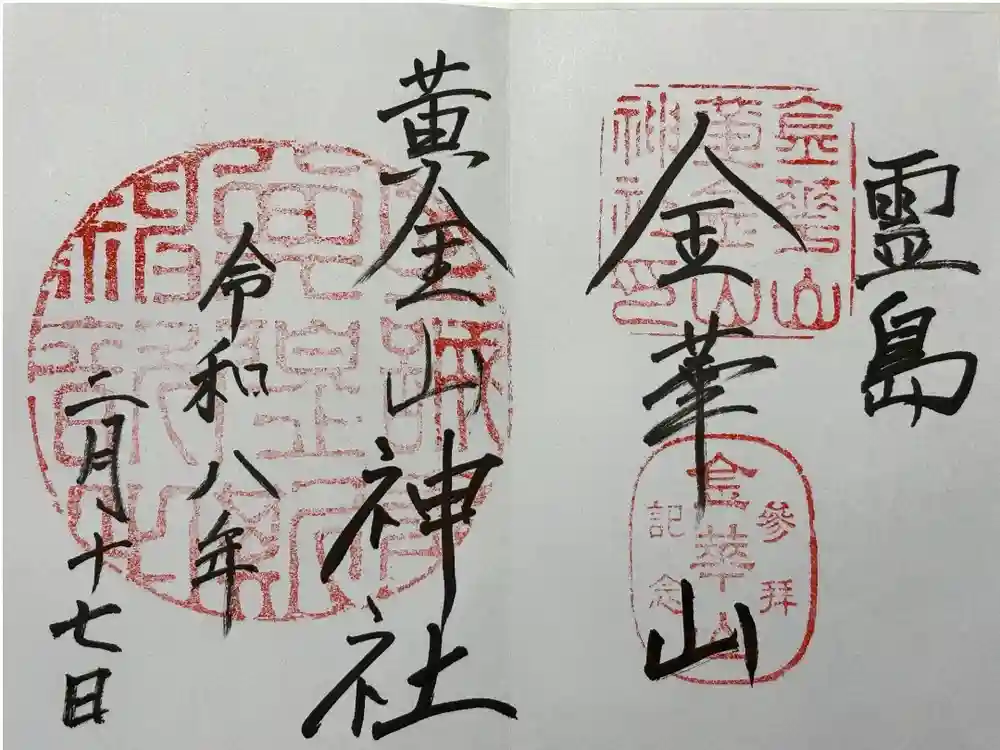 霊島
金華山
黄金山神社
令和八年
二月十七日
金華山
黄金山
神社印
参拝
金華山
記念